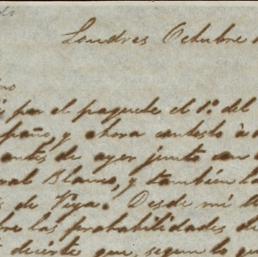 Londres Octubre
por el paquete el 1º. del
y ahora contesto á
antes de ayer junto con
Blanco, y tambien la
de Vega. Desde mi
las probabilidades de
decirte que, segun lo que